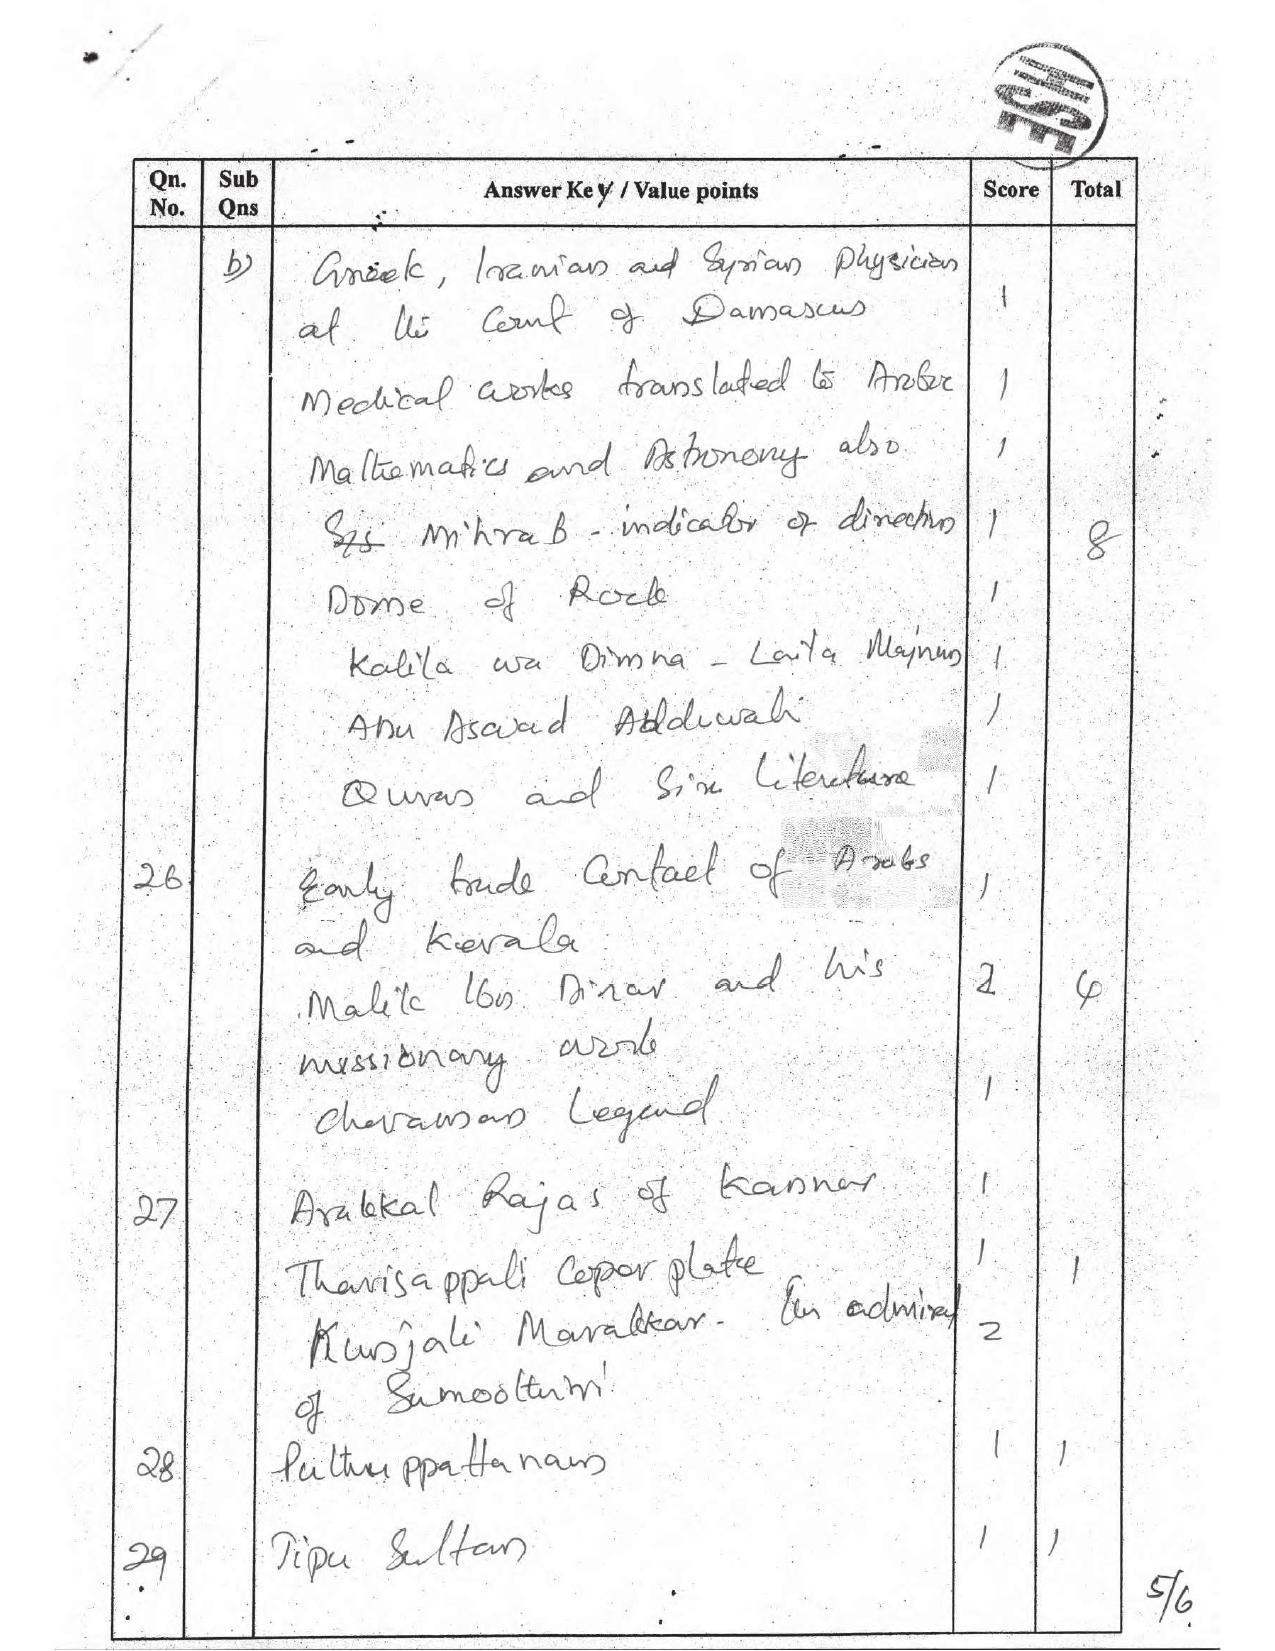 HSE
Qn. No. Sub Qns Answer Key / Value points Score Total
b) Greek, Iranian and Syrian Physician
at the Court of Damascus 1
Medical works translated to Arabic 1
Mathematics and Astronomy also 1
Mihrab - indicator of direction 1 8
Dome of Rock 1
Kalila wa Dimna - Laila Majnun 1
Abu Aswad Adduwali 1
Quran and Sira literature 1
26 Early trade Contact of Arabs 1
and Kerala
Malik Ibn Dinar and his 2 4
missionary work
Cheraman Legend 1
27 Arakkal Rajas of Kannur 1
Tharisappali Copor plate 1 1
Kunjali Marakkar - An admiral 2
of Samoothiri
28 Puthuppattanam 1 1
29 Tipu Sultan 1 1
5/6